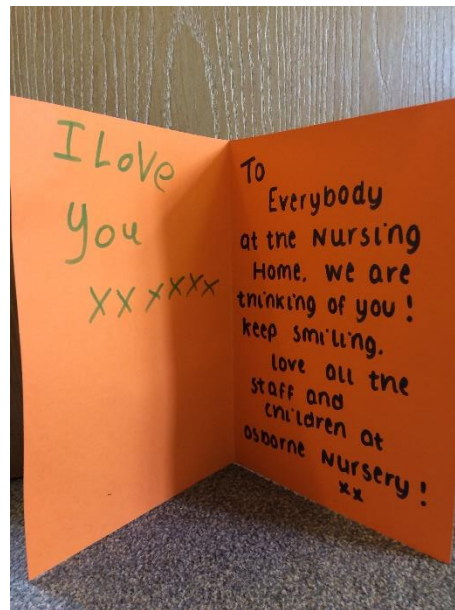 I Love
You
xx xxxx
To
Everybody
at the Nursing
Home, we are
thinking of you!
keep smiling.
love all the
staff and
children at
osborne Nursery!
xx